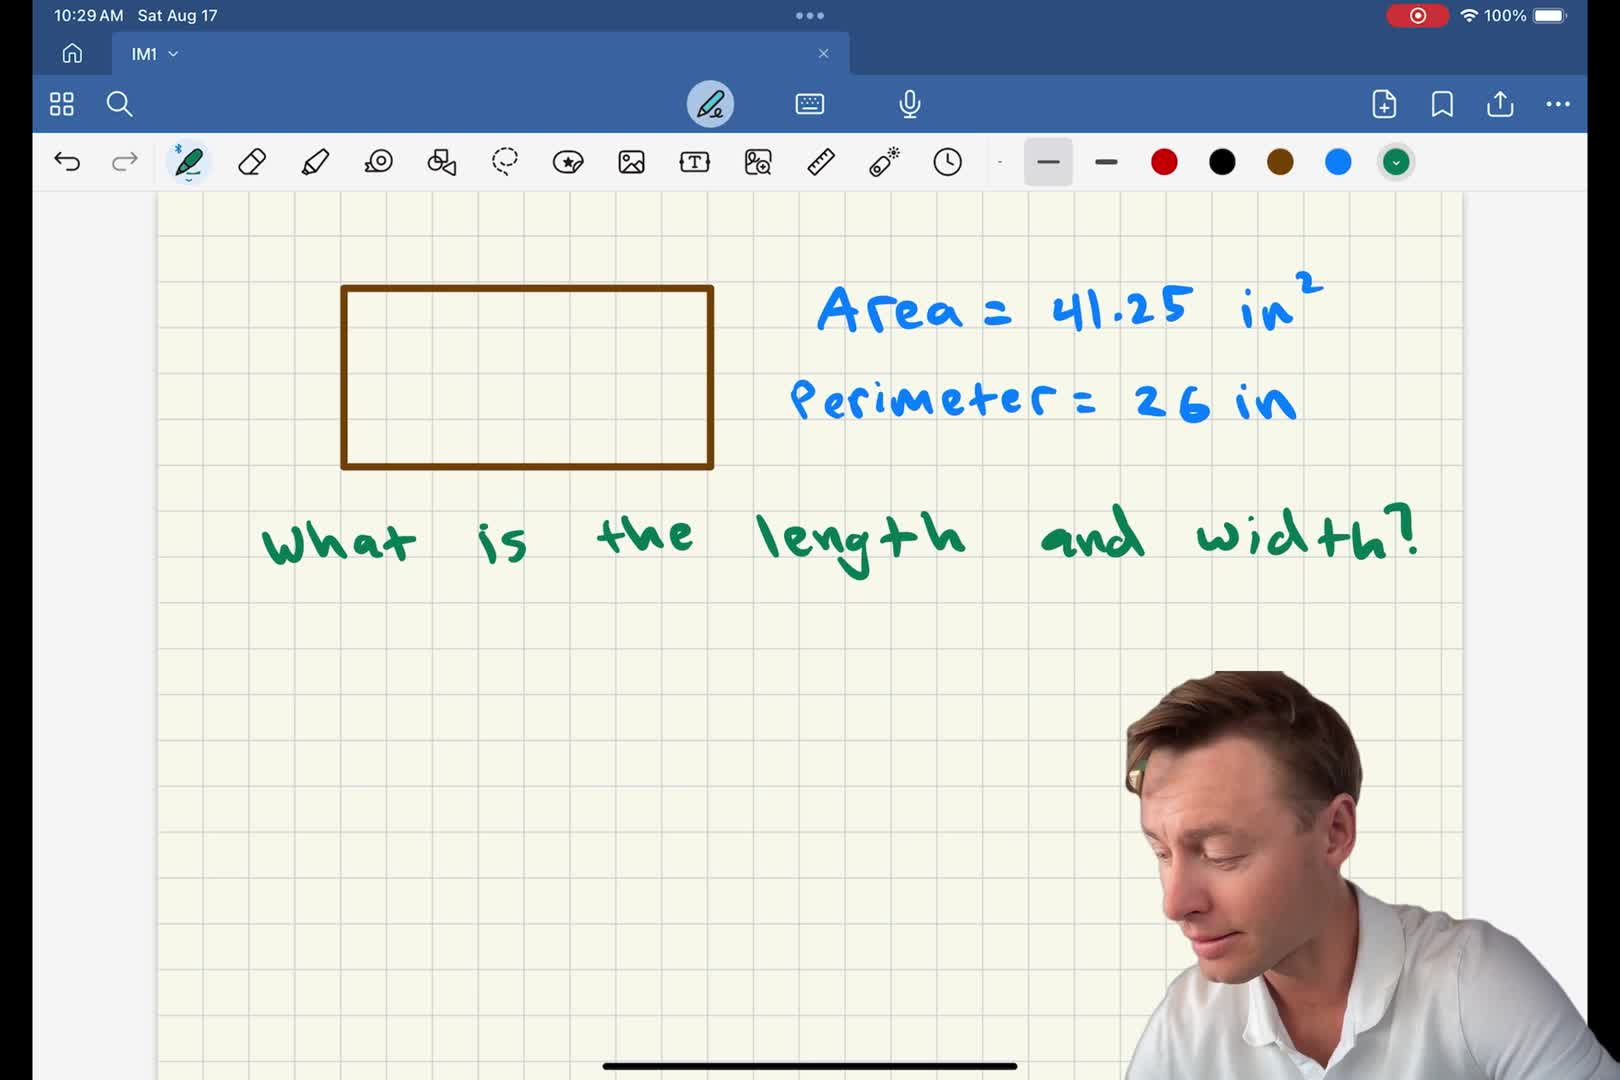 10:29 AM Sat Aug 17
100%
IM1
Area = 41.25 in²
Perimeter = 26 in
What is the length and width?